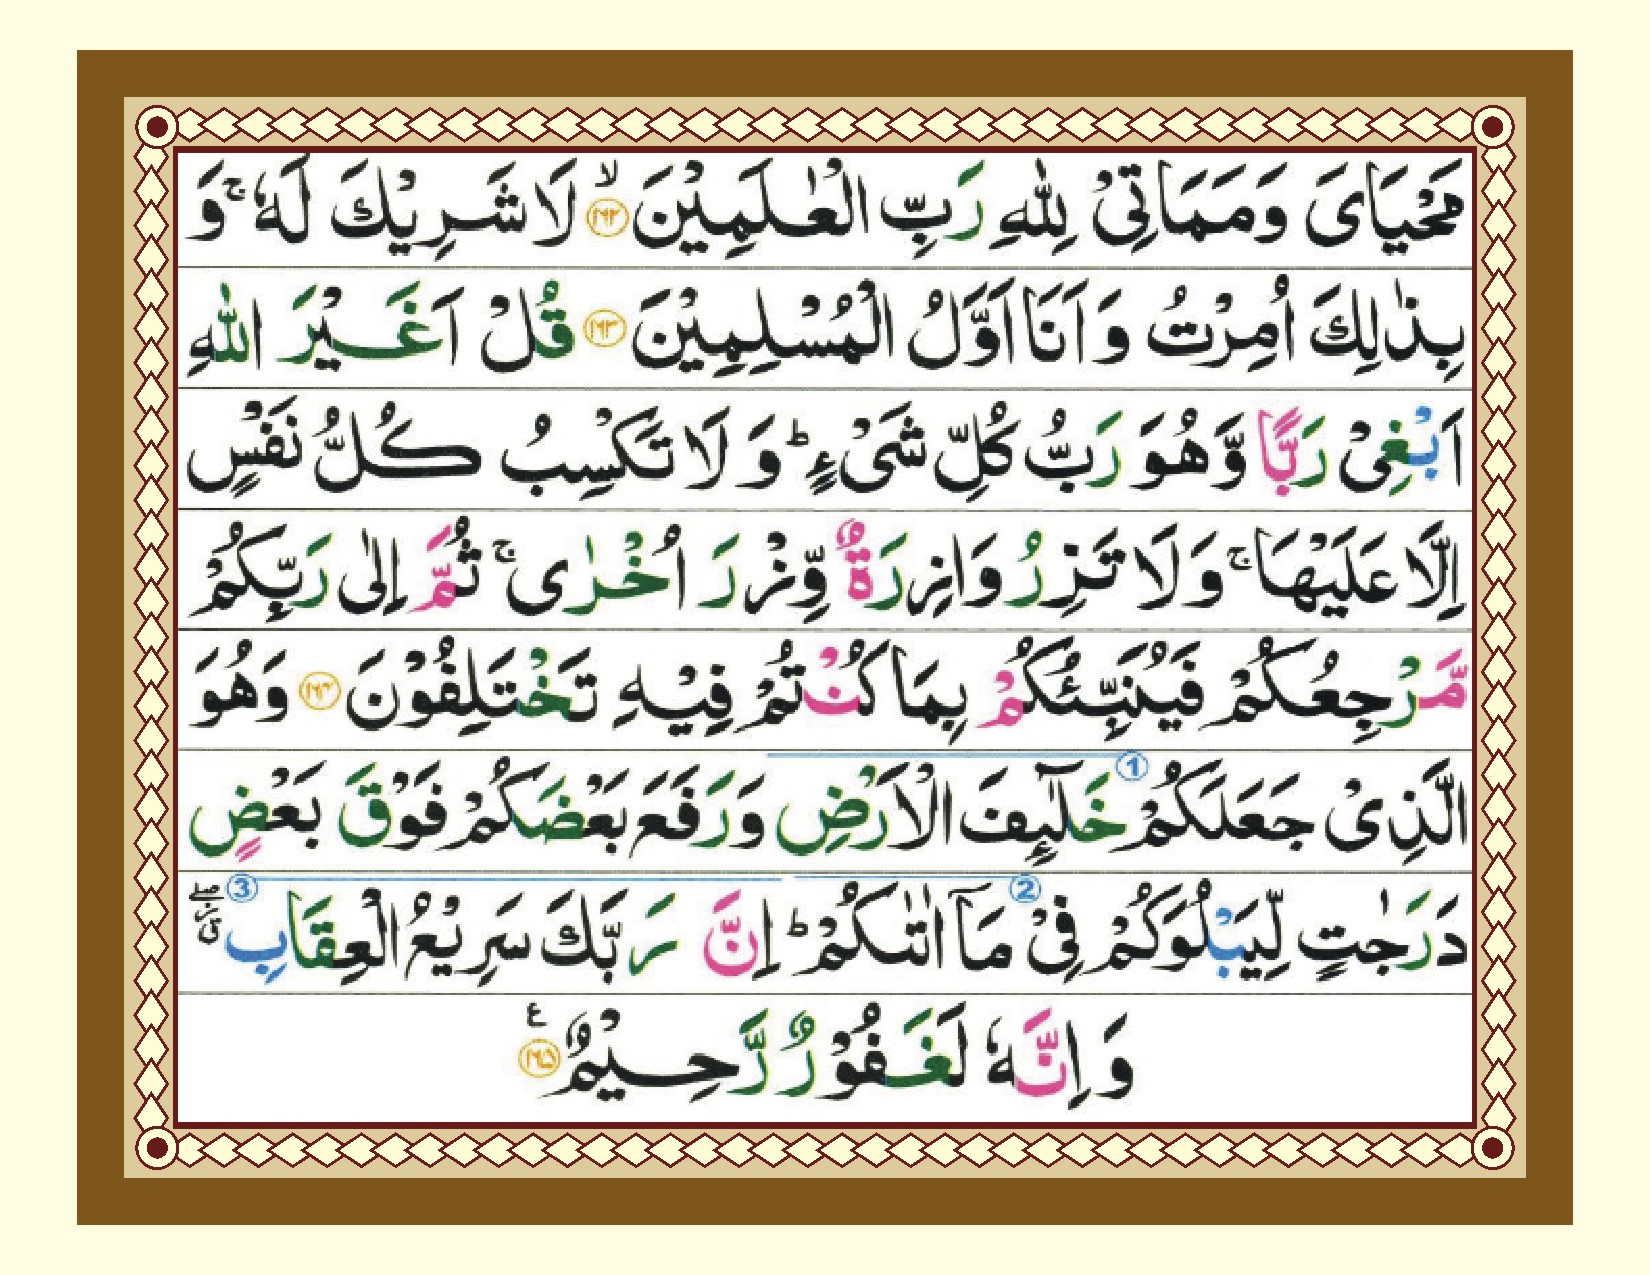 مَحْيَايَ وَمَمَاتِيْ لِلّٰهِ رَبِّ الْعٰلَمِيْنَ ۙ‏﴿۱۶۲﴾ لَا شَرِيْكَ لَهٗ ۚ وَ
بِذٰلِكَ اُمِرْتُ وَ اَنَا اَوَّلُ الْمُسْلِمِيْنَ ﴿۱۶۳﴾ قُلْ اَغَيْرَ اللّٰهِ
اَبْغِيْ رَبًّا وَّ هُوَ رَبُّ كُلِّ شَيْءٍ ؕ وَ لَا تَكْسِبُ كُلُّ نَفْسٍ
اِلَّا عَلَيْهَا ۚ وَ لَا تَزِرُ وَازِرَةٌ وِّزْرَ اُخْرٰى ۚ ثُمَّ اِلٰى رَبِّكُمْ
مَّرْجِعُكُمْ فَيُنَبِّئُكُمْ بِمَا كُنْتُمْ فِيْهِ تَخْتَلِفُوْنَ ﴿۱۶۴﴾ وَهُوَ
الَّذِيْ جَعَلَكُمْ ① خَلٰٓئِفَ الْاَرْضِ وَرَفَعَ بَعْضَكُمْ فَوْقَ بَعْضٍ
دَرَجٰتٍ لِّيَبْلُوَكُمْ فِيْ ② مَاۤ اٰتٰىكُمْ ؕ اِنَّ رَبَّكَ سَرِيْعُ الْعِقَابِ ③ ۖ
وَ اِنَّهٗ لَغَفُوْرٌ رَّحِيْمٌ ﴿۱۶۵﴾ ع